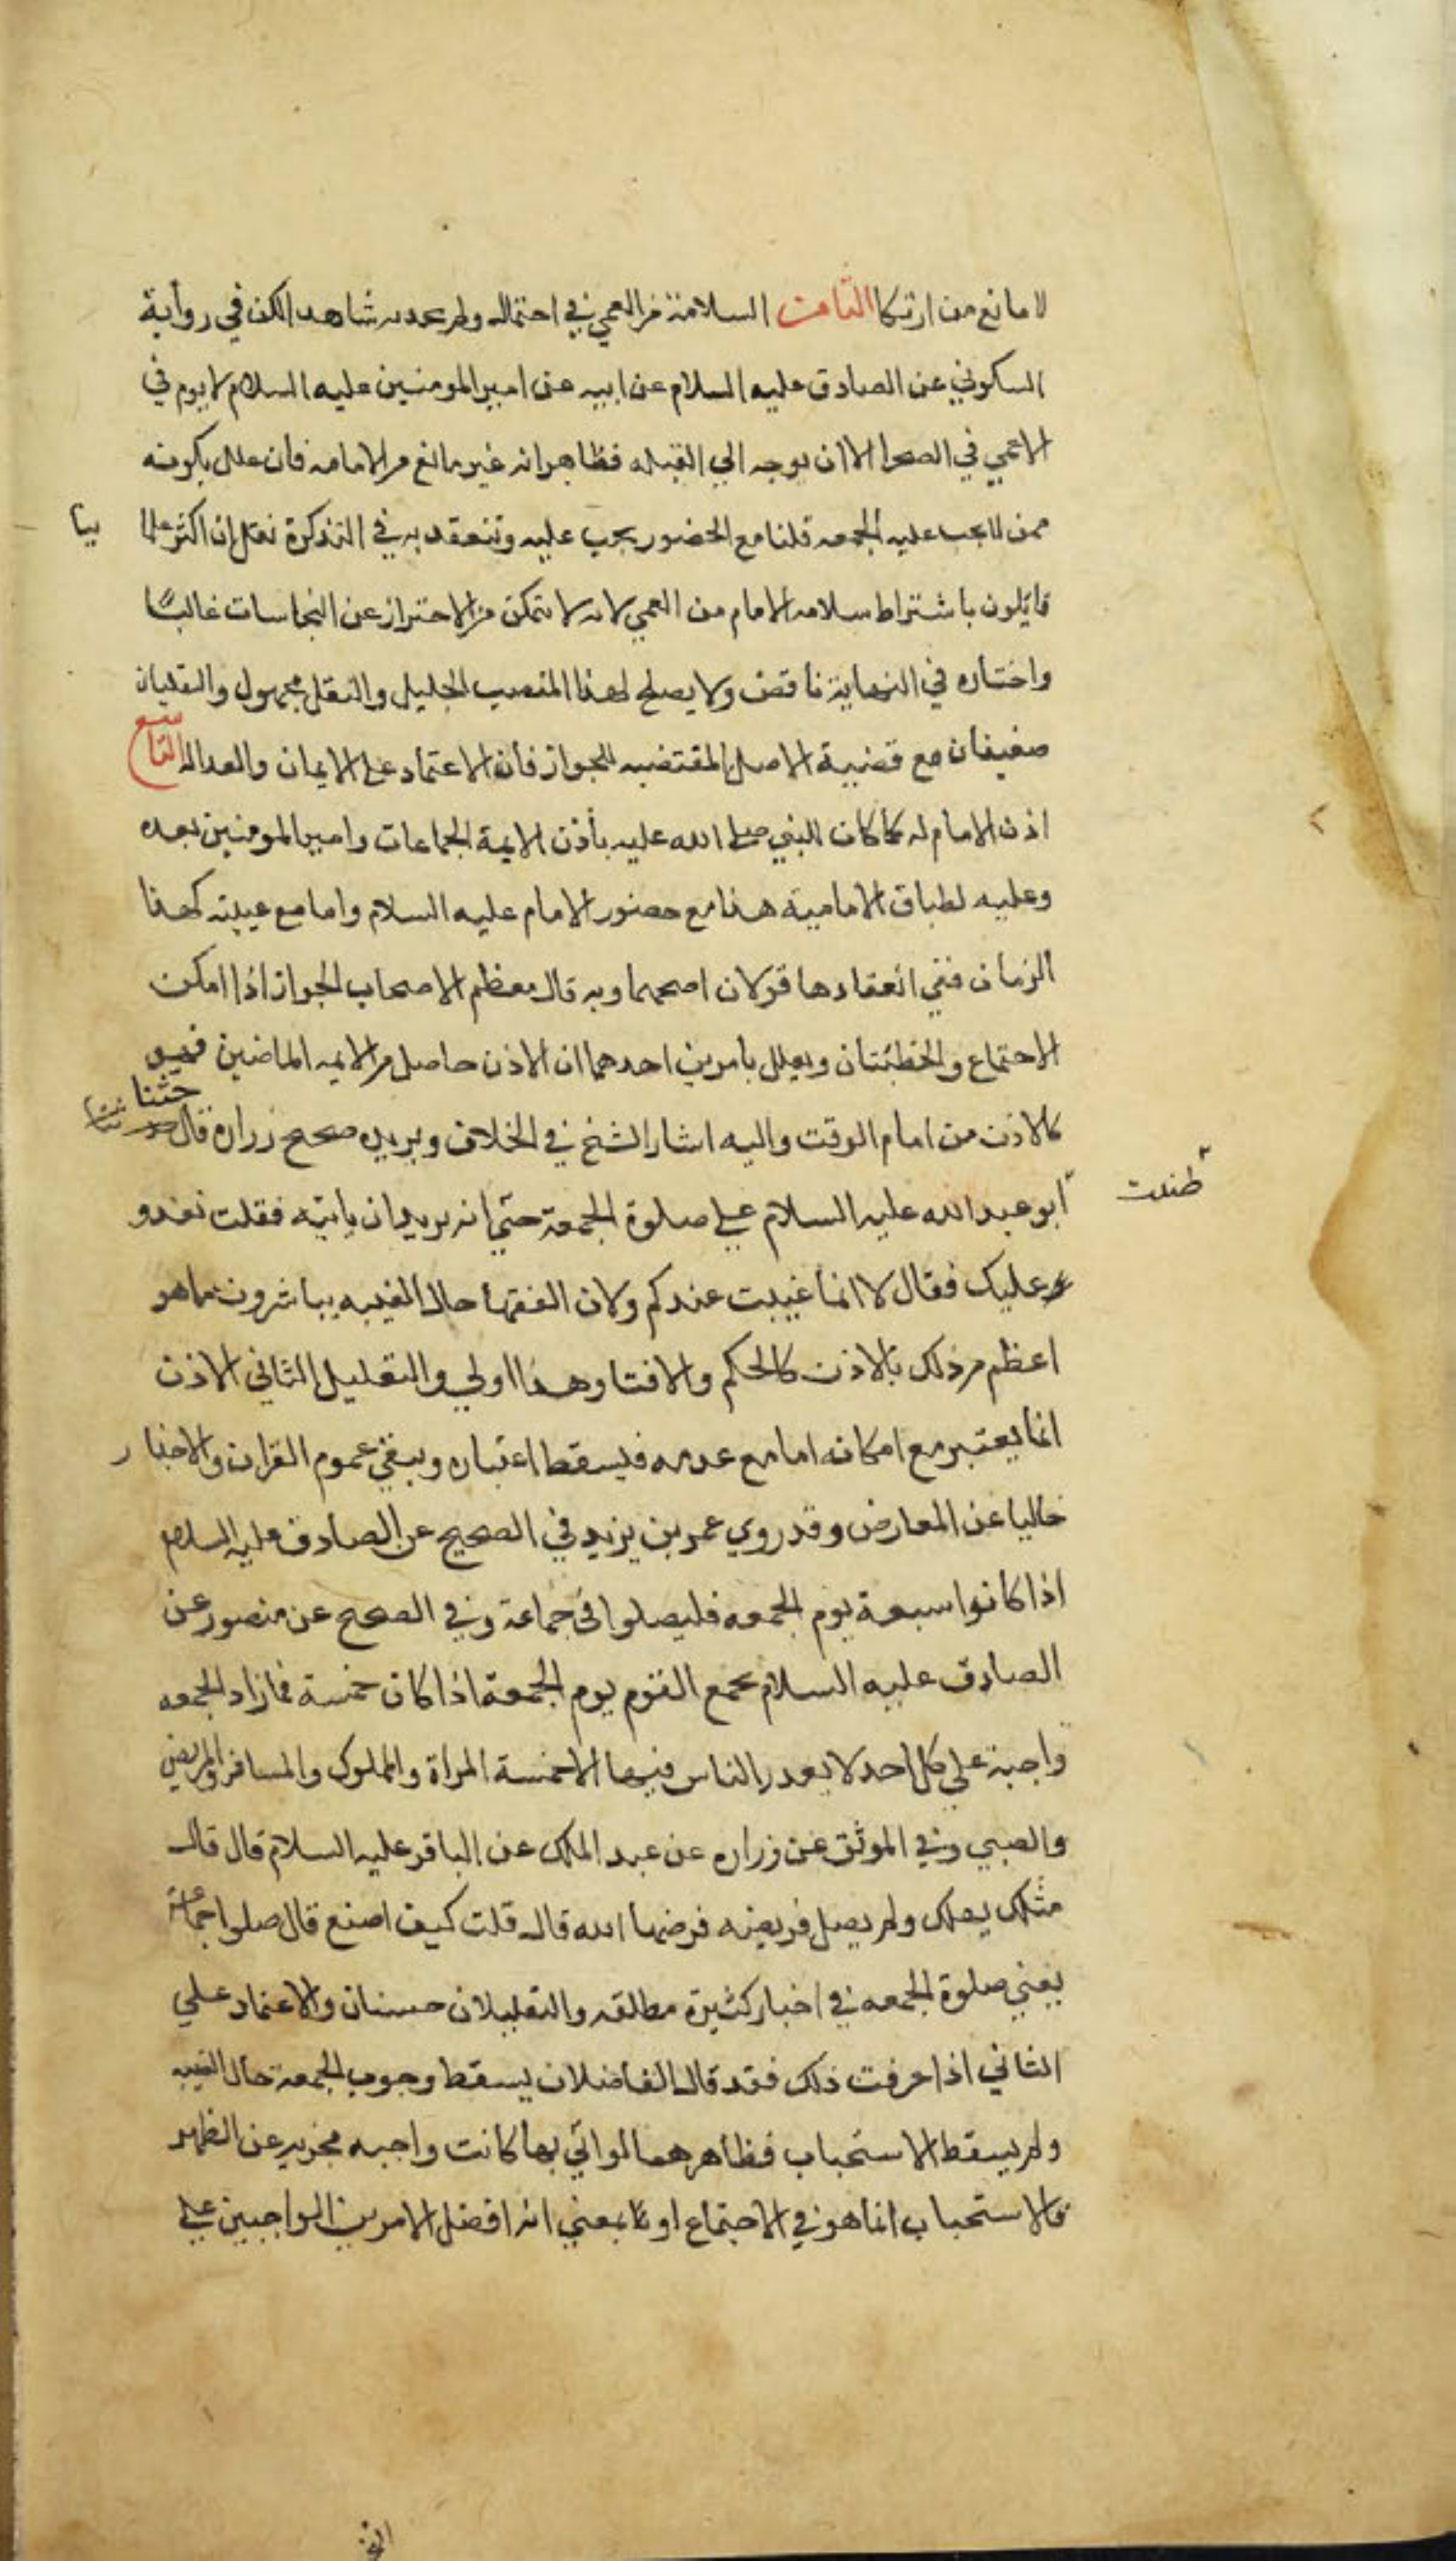 لا مانع من ارتكا الثامن السلامة من العمي في احتمال ولم نجد به شاهدا لكن في رواية
السكوني عن الصادق عليه السلام عن ابيه عن امير المومنين عليه السلام لا يوم في
الاعمي في الصحرا الا ان يوجه الي القبله فظاهرانه غير مانع من الامامه فان علل بكونه
ممن لا يجب عليه الجمعه قلنا مع الحضور يجب عليه وتنعقد به في التذكرة نقل ان اكثر علما
ينا
قايلون باشتراط سلامه الامام من العمي لانه لا يتمكن من الاحتراز عن النجاسات غالبًا
واختاره في النهاية ناقص ولا يصلح لهذا المنصب الجليل والنقل مجهول والتعليلان
ضعيفان مع قضية الاصل المقتضيه للجواز فان الاعتماد على الايمان والعداله التاسع
اذن الامام له كما كان النبي صلى الله عليه يأذن الايمة الجماعات وامير المومنين بعده
وعليه اطباق الامامية هذا مع حضور الامام عليه السلام واما مع غيبته كهذا
الزمان ففي انعقادها قولان اصحهما وبه قال معظم الاصحاب الجواز اذا امكن
الاجتماع والخطبتان ويعلل بامرين احدهما ان الاذن حاصل من الايمه الماضين فهو
كالاذن من امام الوقت واليه اشار الشيخ في الخلاف ويريده صحيح زراره قال حثنا
ابو عبد الله عليه السلام علي صلوة الجمعة حتي انه يريد ان ياتيه فقلت نغدو
ظننت
عليك فقال لا انما عنيت عندكم ولان الفقها حال الغيبه يباشرون ما هو
اعظم من ذلك بالاذن كالحكم والافتا وهذا اولي والتعليل الثاني الاذن
انما يعتبر مع امكانه اما مع عدمه فيسقط اعتباره ويبقي عموم القران والاخبار
خاليا عن المعارض وقد روي عمر بن يزيد في الصحيح عن الصادق عليه السلام
اذا كانوا سبعة يوم الجمعه فليصلوا في جماعة وفي الصحيح عن منصور عن
الصادق عليه السلام يجمع القوم يوم الجمعة اذا كان خمسة فمازاد الجمعه
واجبة علي كل احد لا يعدر الناس فيها الا خمسة المراة والمملوك والمسافر والمريض
والصبي وفي الموثق عن زراره عن عبد الملك عن الباقر عليه السلام قال قال
مثلك يهلك ولم يصل فريضه فرضها الله قال قلت كيف اصنع قال صلوا جماعة
يعني صلوة الجمعه في اخبار كثيرة مطلقه والتعليلان حسنان والاعتماد علي
الثاني اذا عرفت ذلك فقد قال الفاضلان يسقط وجوب الجمعة حال الغيبه
ولم يسقط الاستحباب فظاهرهما لو اتي بها كانت واجبه مجزيه عن الظهر
فالاستحباب انما هو في الاجتماع او بمعني انه افضل الامرين الواجبين علي